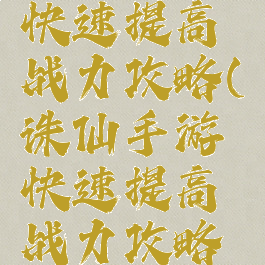 快速提高
战力攻略(
诛仙手游
快速提高
战力攻略